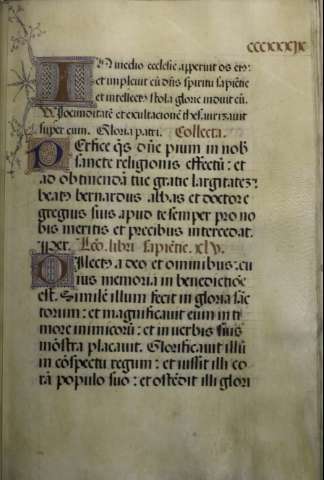 ccccxxxix
IN medio ecclesie apperuit os eius:
et impleuit eũ dñs spiritu sapiẽtie
et intellectꝰ stola glorie induit eũ.
ps. Iocunditatẽ et exultacionẽ thesaurizauit
super eum. Gloria patri. Collecta.
PErfice q̃s dñe pium in nob̃
sancte religionis effectũ: et
ad obtinendã tue gratie largitatẽ:
beatꝰ bernardus abbas et doctor e
gregius suis apud te semper pro no
bis meritis et precibus intercedat.
per. Lc̃o. libri sapiẽtie. xlv.
DIlectꝰ a deo et ominibus: cu
ius memoria in benedictiõe
est. Similẽ illum fecit in gloria sãc
torum: et magnificauit eum in ti
more inimicorũ: et in uerbis suis
mõstra placauit. Glorificauit illũ
in cõspectu regum: et iussit illi co
rã populo suo: et ostẽdit illi glori